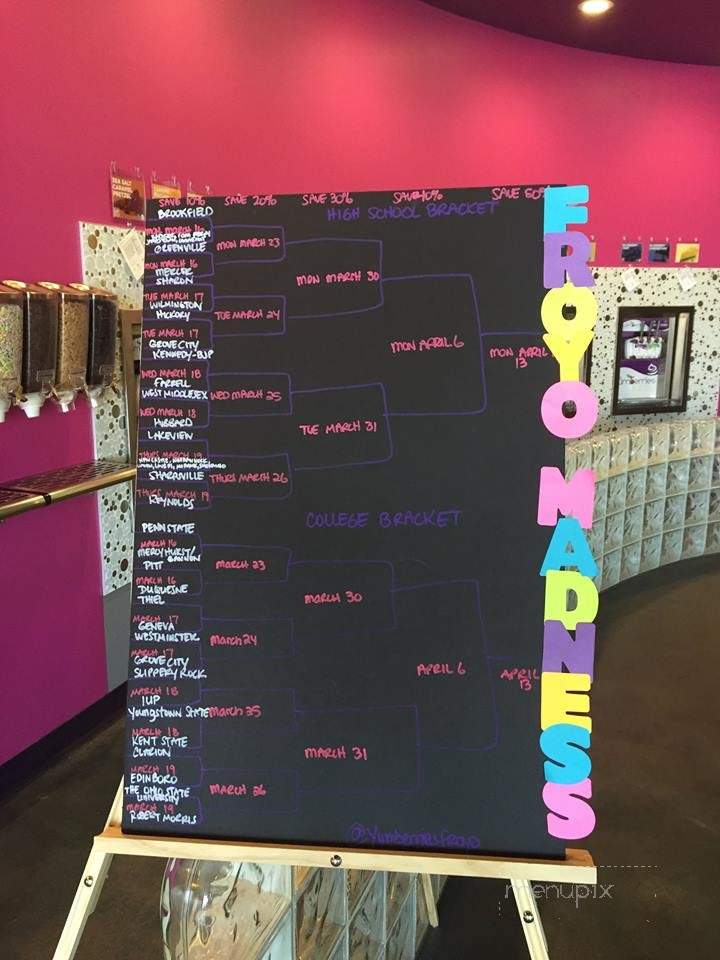 SEA SALT
CARAMEL
PRETZEL
SAVE 10% SAVE 20% SAVE 30% SAVE 40% SAVE 50%
HIGH SCHOOL BRACKET
BROOKFIELD
MON MARCH 16
GREENVILLE
MON MARCH 16
MERCER
SHARON
TUE MARCH 17
WILMINGTON
HICKORY
TUE MARCH 17
GROVE CITY
KENNEDY-BJP
WED MARCH 18
FARRELL
WEST MIDDLESEX
WED MARCH 18
HUBBARD
LAKEVIEW
THURS MARCH 19
SHARPSVILLE
THURS MARCH 19
REYNOLDS
MON MARCH 23
TUE MARCH 24
WED MARCH 25
THURS MARCH 26
MON MARCH 30
TUE MARCH 31
MON APRIL 6
MON APRIL
13
COLLEGE BRACKET
PENN STATE
MARCH 16
MERCYHURST/
GANNON
PITT
MARCH 16
DUQUESNE
THIEL
MARCH 17
GENEVA
WESTMINSTER
MARCH 17
GROVE CITY
SLIPPERY ROCK
MARCH 18
IUP
YOUNGSTOWN STATE
MARCH 18
KENT STATE
CLARION
MARCH 19
EDINBORO
THE OHIO STATE
UNIVERSITY
MARCH 19
ROBERT MORRIS
MARCH 23
March 24
March 25
MARCH 26
MARCH 30
MARCH 31
APRIL 6
APRIL
13
@Yumberriesfroyo
FROYO MADNESS
menupix